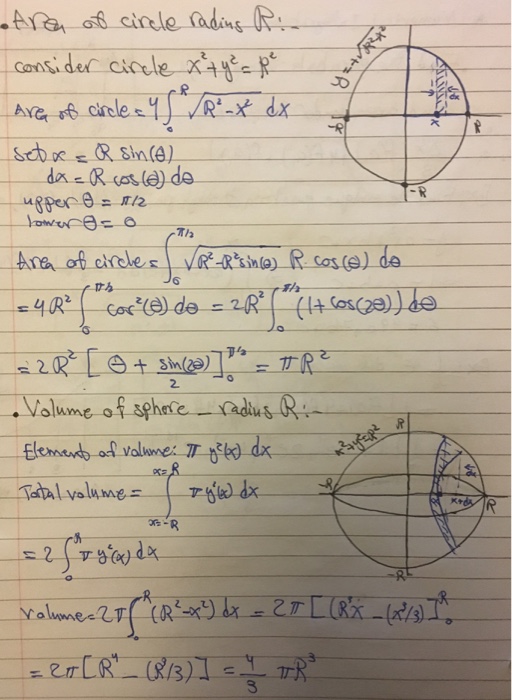 • Area of circle radius R:-
consider circle x²+y²=R²
Area of circle = 4∫₀ᴿ √(R²-x²) dx
set x = R sin(θ)
dx = R cos(θ) dθ
upper θ = π/2
lower θ = 0
Area of circle = ∫₀^(π/2) √(R²-R²sin(θ)) R cos(θ) dθ
= 4R² ∫₀^(π/2) cos²(θ) dθ = 2R² ∫₀^(π/2) (1+cos(2θ)) dθ
= 2R² [θ + sin(2θ)/2]₀^(π/2) = πR²
y=+√R²-x²
-R
x
dx
R
-R
• Volume of sphere - radius R:-
Element of volume: π y²(x) dx
Total volume = ∫_(x=-R)^(x=R) π y²(x) dx
= 2∫₀ᴿ π y²(x) dx
volume = 2π∫₀ᴿ (R²-x²) dx = 2π[(R²x - (x³/3)]₀ᴿ
= 2π[R⁴ - (R³/3)] = 4/3 πR³
x²+y²=R²
R
-R
dx
x+dx
R
-R